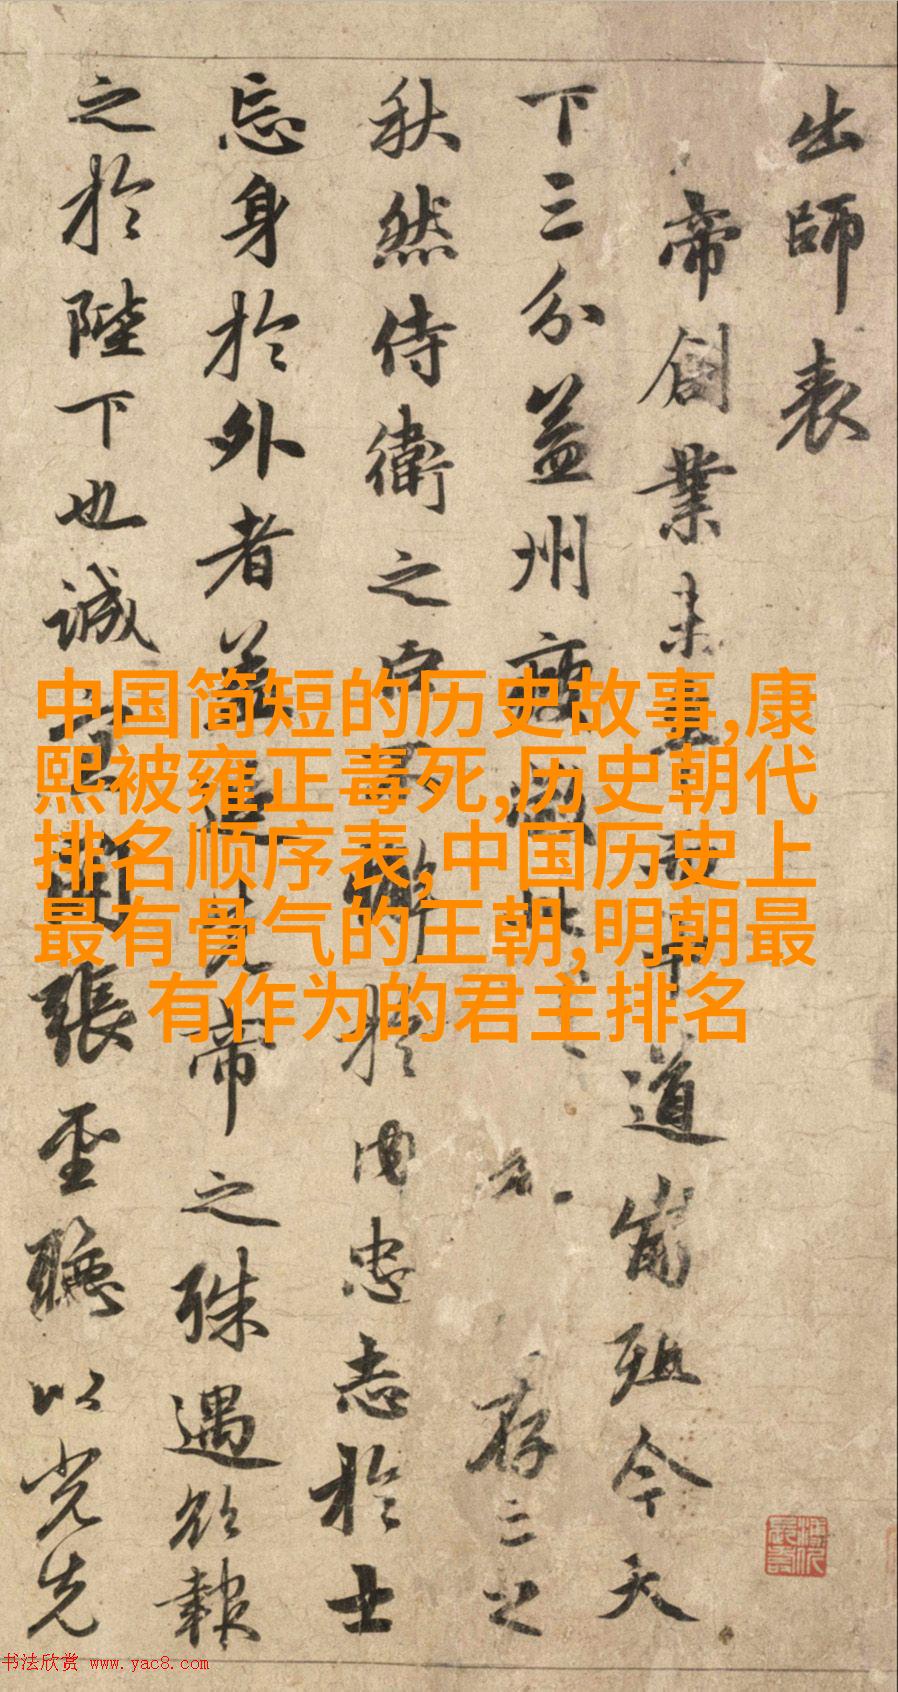 出師表
帝創業未半而中道崩殂今天
下三分益州疲弊此存亡之
秋然侍衛之臣不懈於内忠志於士
忘身於外者蓋追先帝之殊遇欲報
之於陛下也誠宜開張聖聽以光先
中国简短的历史故事,康
熙被雍正毒死,历史朝代
排名顺序表,中国历史上
最有骨气的王朝,明朝最
有作为的君主排名
书法欣赏 www.yac8.com